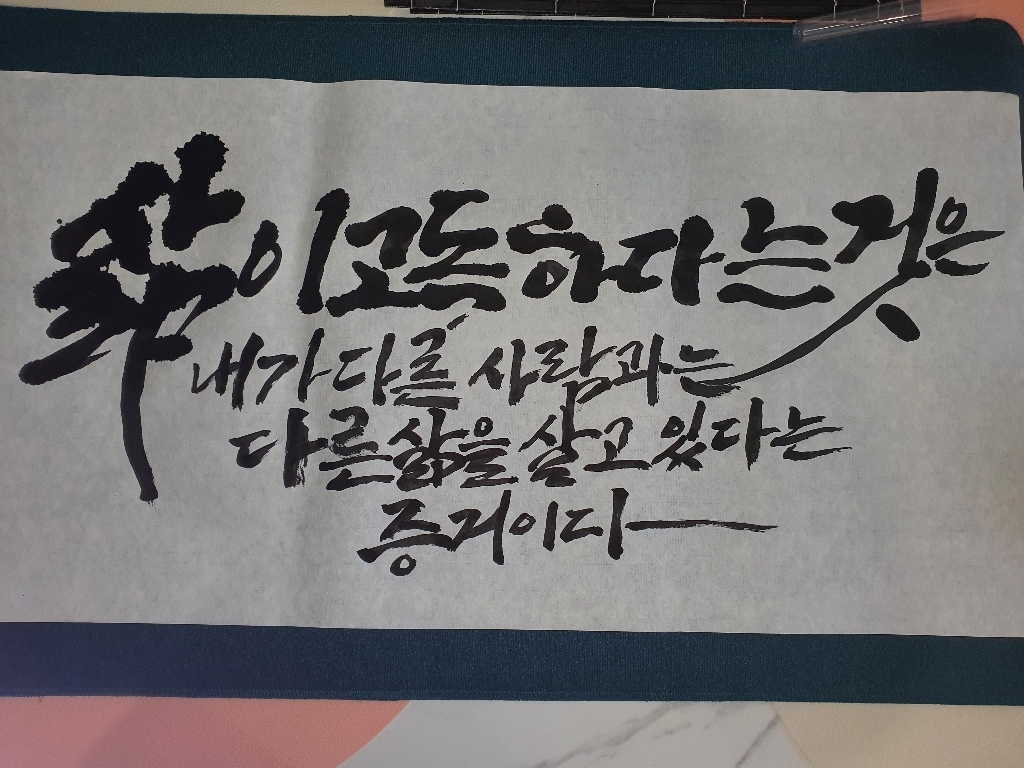 삶이 고독하다는 것은
내가 다른 사람과는
다른 삶을 살고 있다는
증거이다